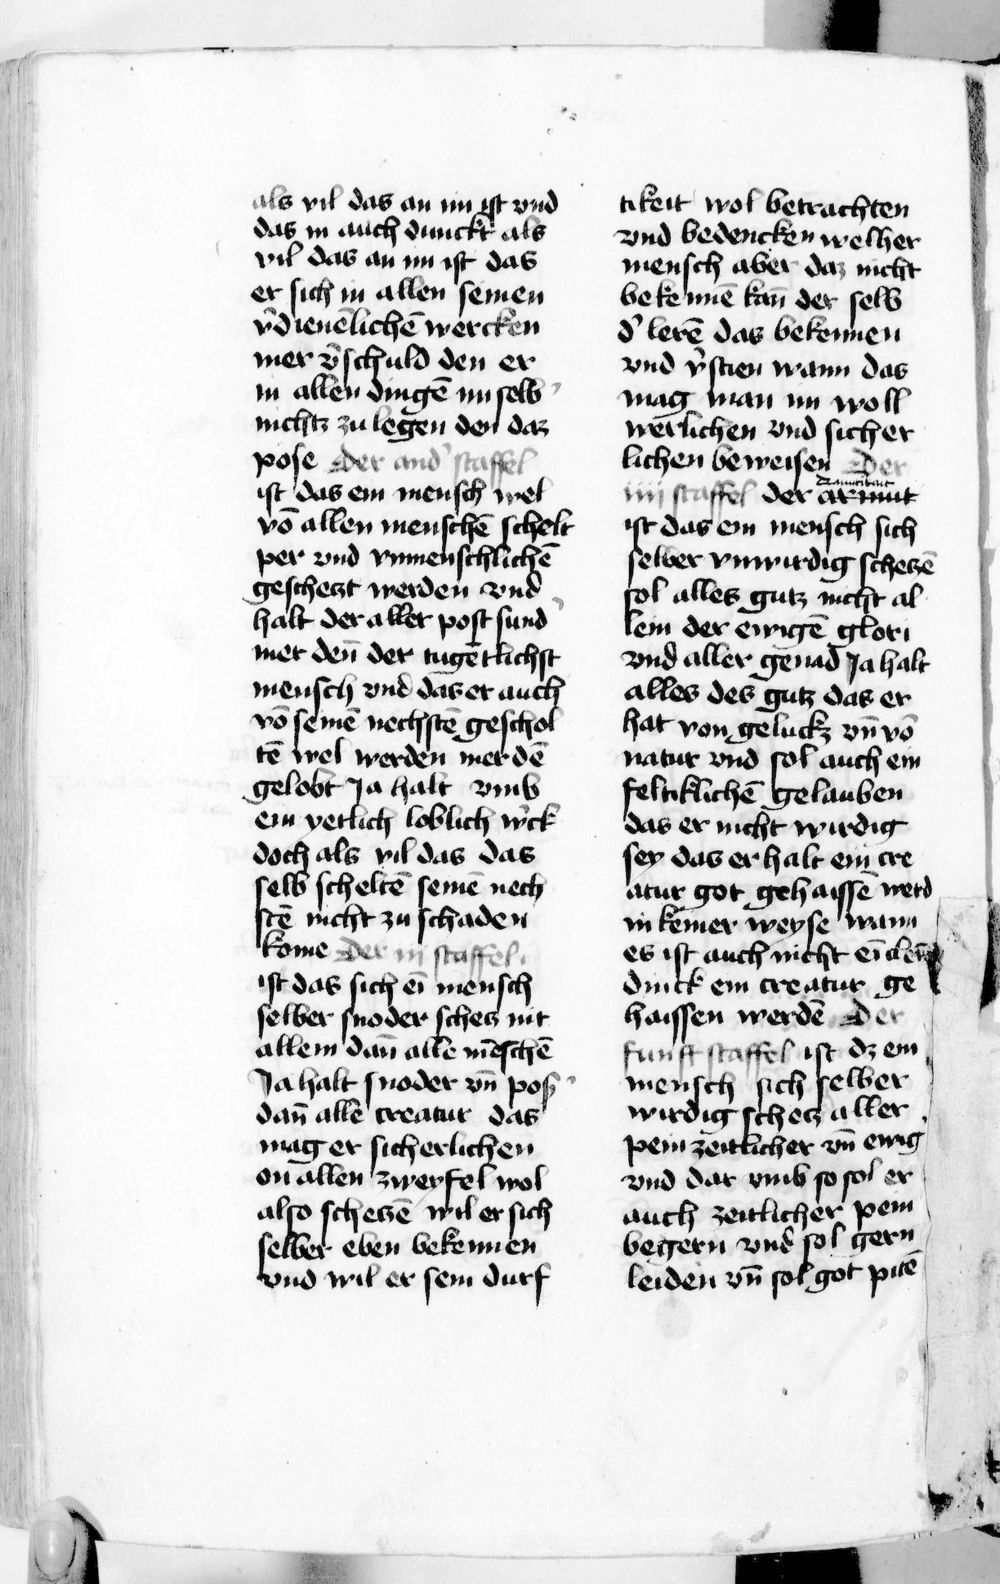 als vil das an im ist vnd
das in auch dunckt als
vil das an im ist das
er sich in allen seinen
v̉dienēlichē wercken
mer v̉schuld den er
in allen dingē im selb̉
nichtz zu legen den daz
pose Der and̉ staffel
ist das ein mensch wel
vō allen menschē schelt
per vnd vnmenschlichē
geschetzt werden vnd
halt der aller post sund̉
mer den̄ der tugētlichst
mensch vnd das er auch
vō seinē nechstē geschol
tē wel werden mer dē
gelobt Ja halt vmb
ein yetlich loblich w̉ck
doch als vil das das
selb scheltē seinē nech
stē nicht zu schaden
kome Der iij staffel
ist das sich eī mensch
selber snoder schetz nit
allein dan̄ alle mēschē
Ja halt snoder vn̄ pos̉
dan̄ alle creatur das
mag er sicherlichen
on allen zweyfel wol
also schetzē wil er sich
selber eben bekennen
vnd wil er sein durf
tikeit wol betrachten
vnd bedencken welher
mensch aber daz nicht
bekennē kan̄ der selb
d̉ lerē das bekennen
vnd v̉sten wann das
mag man im woll
werlichen vnd sicher
lichen beweisen Der
iiij staffel der armut
ist das ein mensch sich
selber vnwirdig schetzē
sol alles gutz nicht al
lein der ewigē glori
vnd aller genad Ja halt
alles des gutz das er
hat von geluckz vn̄ vō
natur vnd sol auch ein
feltiklichē gelauben
das er nicht wirdig
sey das er halt ein cre
atur got gehaissē werd
in keiner weyse wann
es ist auch nicht eī clein
dinck ein creatur ge
haissen werdē Der
funft staffel ist dz ein
mensch sich selber
wirdig schetz aller
pein zeitlicher vn̄ ewig̉
vnd dar vmb so sol er
auch zeitlicher pein
begern vnd sol gern
leiden vn̄ sol got pitē